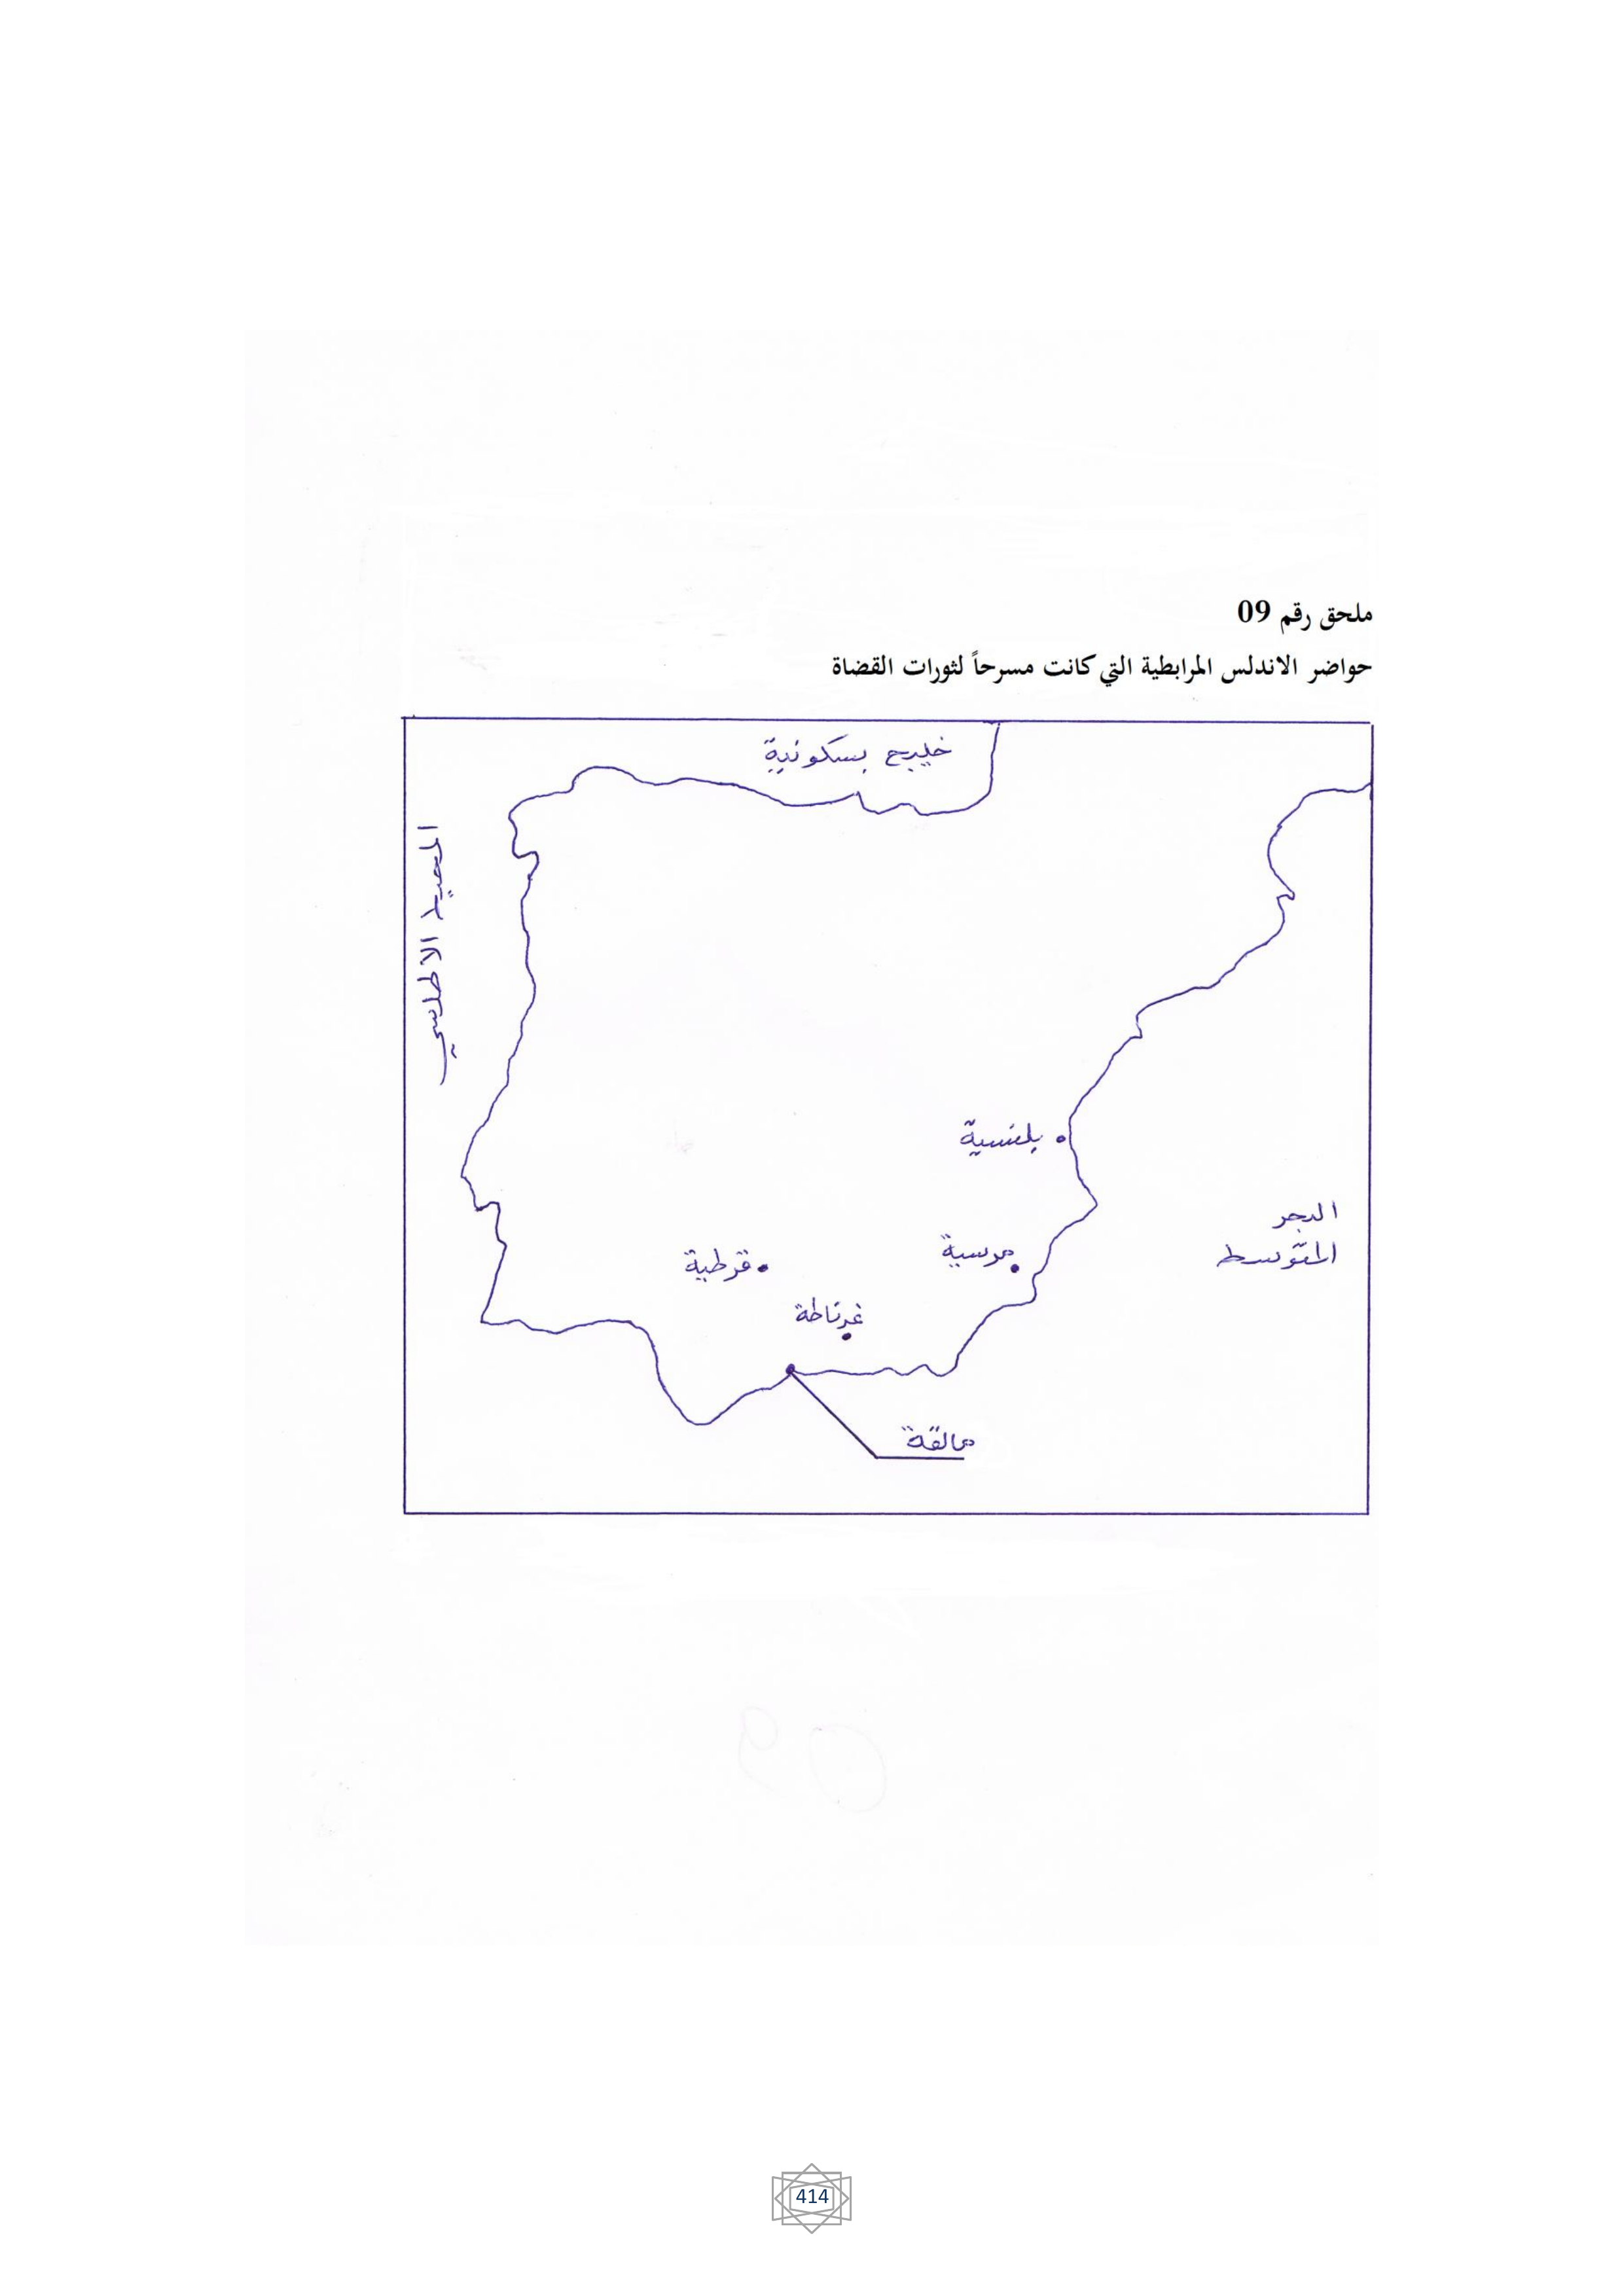 ملحق رقم 09
حواضر الاندلس المرابطية التي كانت مسرحاً لثورات القضاة
خليج بسكونية
المحيط الاطلسي
بلنسية
البحر
المتوسط
مرسية
قرطبة
غرناطة
مالقة
414